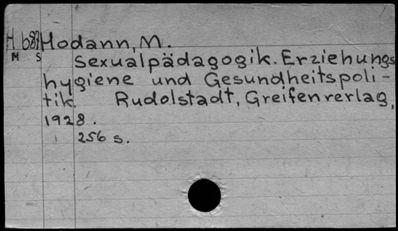 H 689 Hodann, M.
M S
Sexualpädagogik. Erziehungs
hygiene und Gesundheitspoli-
tik. Rudolstadt, Greifenverlag,
1928.
256 s.